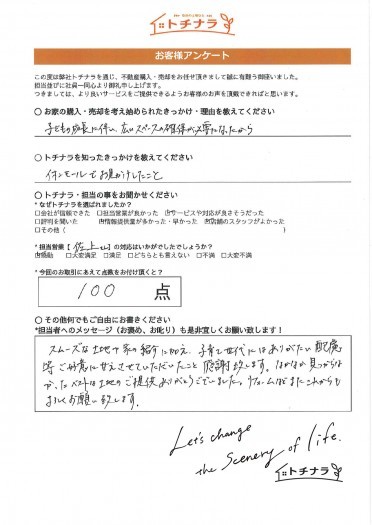 トチナラ
お客様アンケート
この度は弊社トチナラを通じ、不動産購入・売却をお任せ頂きまして誠に有難う御座いました。
担当並びに社員一同心より御礼申し上げます。
つきましては、より良いサービスをご提供できるようお客様のお声を頂戴できればと思います。
○ お家の購入・売却を考え始められたきっかけ・理由を教えてください
子どもの成長に伴い、広いスペースの確保が必要になったから
○ トチナラを知ったきっかけを教えてください
イオンモールでお見かけしたこと
○ トチナラ・担当の事をお聞かせください
* なぜトチナラを選ばれましたか?
□会社が信頼できた □担当営業が良かった ☑サービスや対応が良さそうだった
□評判を聞いた ☑情報提供量が多かった・早かった ☑店舗のスタッフがよかった
□その他 ( )
*担当営業【佐上さん】の対応はいかがでしたでしょうか?
☑感動 □大変満足 □満足 □どちらとも言えない □不満 □大変不満
* 今回のお取引にあえて点数をお付け頂くと?
100 点
○ その他何でもご自由にお書きください
*担当者へのメッセージ(お褒め、お叱り)も是非宜しくお願い致します!
スムーズな土地や家の紹介に加え、子育て世代にはありがたい配慮
等ご好意に甘えさせていただいたこと感謝致します。なかなか見つからな
か、たベストな土地のご提供ありがとうございました。リフォームなどまたこれからも
よろしくお願い致します。
Let's change
the scenery of life.
トチナラ